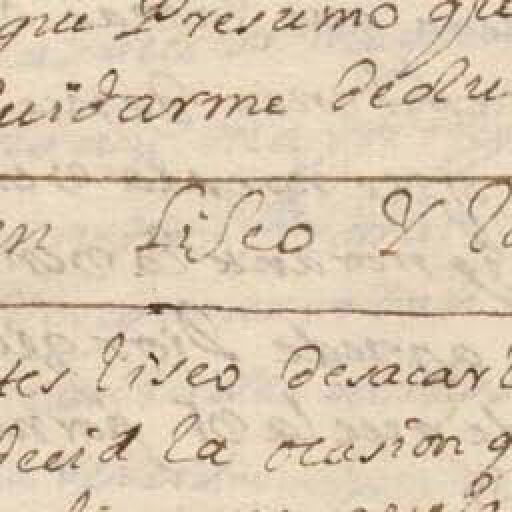 Presumo que
cuidarme dedu
en Liseo Y la
tes liseo desacar
decid la ocasion q